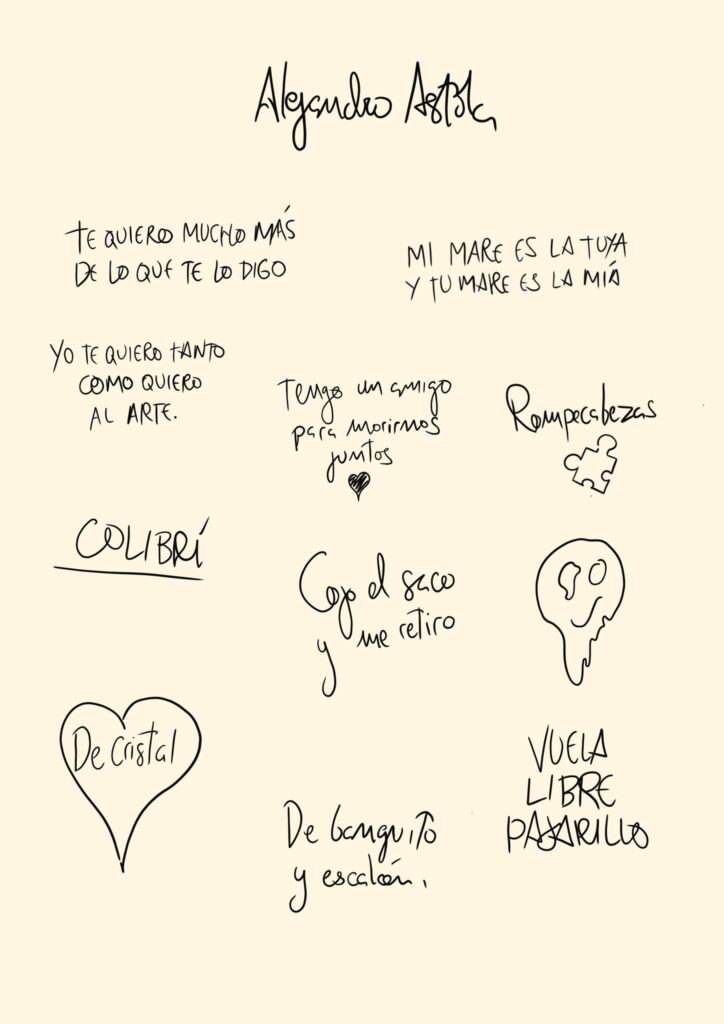 Alejandro Astola
TE QUIERO MUCHO MÁS
DE LO QUE TE LO DIGO
MI MARE ES LA TUYA
Y TU MARE ES LA MÍA
YO TE QUIERO TANTO
COMO QUIERO
AL ARTE.
Tengo un amigo
para morirnos
juntos
Rompecabezas
COLIBRÍ
Cojo el saco
y me retiro
De Cristal
De banquito
y escalón.
VUELA
LIBRE
PAJARILLO